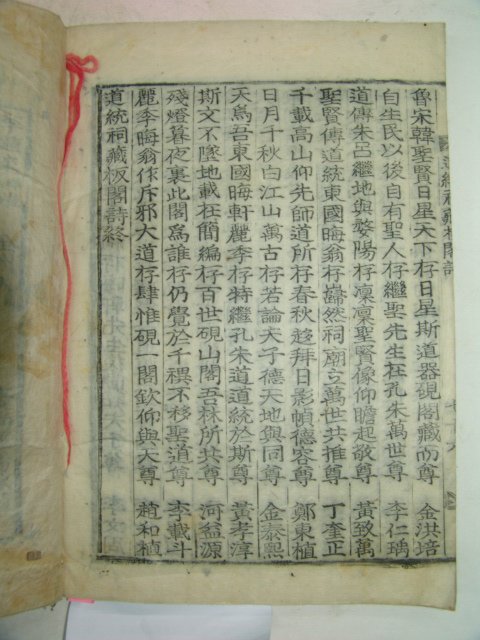 魯宋韓聖賢日星天下存日星斯道器硯閣藏而尊 金洪培
自生民以後自有聖人存繼聖先生在孔朱萬世尊 李仁瑀
道傳朱呂繼地與磐陽存凜凜聖賢像仰瞻起敬尊 黃致萬
聖賢傳道統東國晦翁存巋然祠廟立萬世共推尊 丁奎正
千載高山仰先師道所存春秋趍拜日影幀德容尊 鄭東植
日月千秋白江山萬古存若論夫子德天地與同尊 金泰熙
天爲吾東國晦軒麗季存特繼孔朱道道統於斯尊 黃孝淳
斯文不墜地載在簡編存百世硯山閣吾林所共尊 河益源
殘燈暮夜裏此閣爲誰存仍覺於千禩不移聖道尊 李載斗
麗季晦翁作斥邪大道存肆惟硯一閣欽仰與大尊 趙和植
道統祠藏板閣詩終